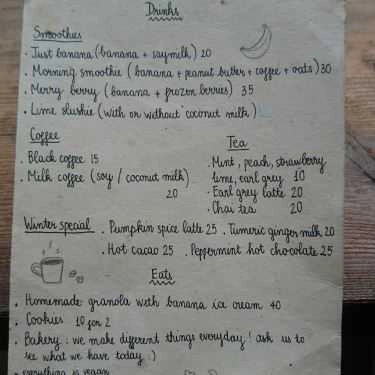 Drinks
Smoothies
· Just banana (banana + soymilk) 20
· Morning smoothie (banana + peanut butter + coffee + oats) 30
· Merry berry (banana + frozen berries) 35
· Lime slushie (with or without coconut milk)
Coffee
· Black coffee 15
· Milk coffee (soy / coconut milk)
20
Tea
· Mint, peach, strawberry
lime, earl grey 10
· Earl grey latte 20
· Chai tea 20
Winter special . Pumpkin spice latte 25 . Tumeric ginger milk 20
. Hot cacao 25 . Peppermint hot chocolate 25
Eats
· Homemade granola with banana ice cream 40
· Cookies 10 for 2
· Bakery : we make different things everyday! ask us to
see what we have today :)
· everything is vegan